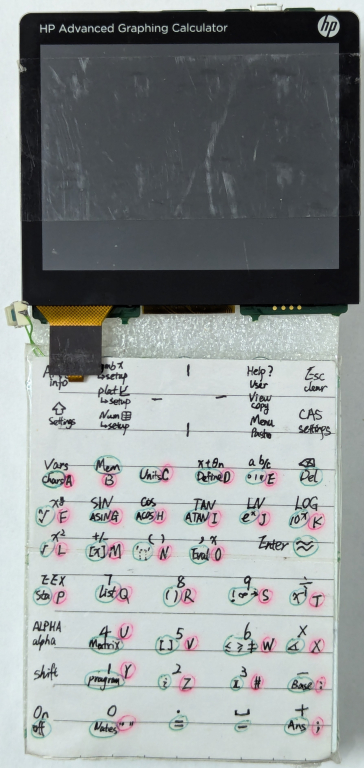 HP Advanced Graphing Calculator hp
Info setup Help? Esc
plot User clear
setup View
Settings Num copy CAS
setup Menu settings
Paste
Vars Mem x t θ n a b/c
chars A B Units C Define D E Del
SIN COS TAN LN LOG
F ASIN G ACOS H ATAN I eˣ J 10ˣ K
x² +/- ( ) , x
√ L |x| M N Eval O Enter ≈
EEX 7 8 9 ÷
Sto P List Q { } R S x⁻¹ T
ALPHA 4 U 5 6 X
alpha Matrix [ ] V ≤ ≥ ≠ W ∠ X
Shift 1 Y 2 3 -
program i Z π # Base :
On 0 . ␣ +
off Notes " " = _ Ans ;